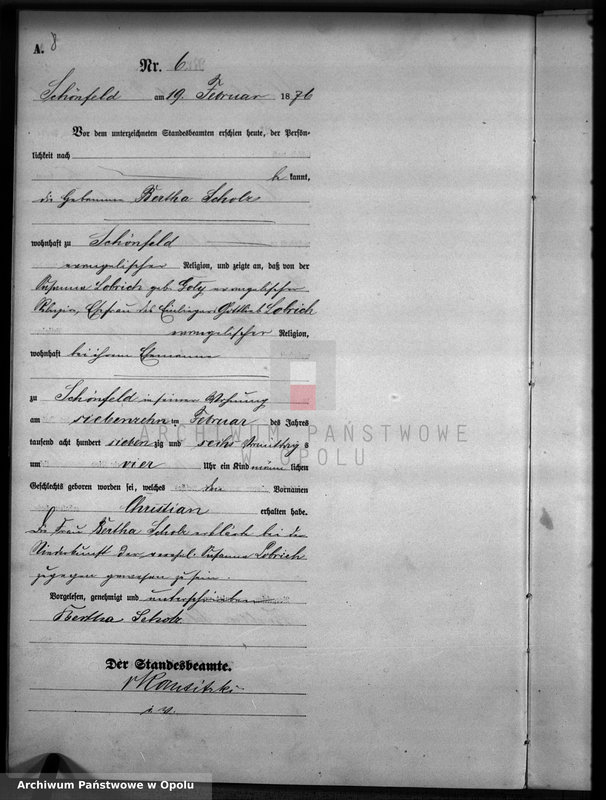 A. 8
Nr. 6
Schönfeld am 19. Februar 1876
Vor dem unterzeichneten Standesbeamten erschien heute, der Persön-
lichkeit nach
be kannt,
die Hebamme Bertha Scholz
wohnhaft zu Schönfeld
evangelischer Religion, und zeigte an, daß von der
Susanna Lobrich geb. evangelischer
Religion, Ehefrau des Einliegers Gottlieb Lobrich
evangelischer Religion,
wohnhaft bei ihrem Ehemanne
zu Schönfeld in seiner Wohnung
am siebenzehn ten Februar des Jahres
tausend acht hundert sieben zig und sechs Vormittag s
um vier Uhr ein Kind männ lichen
Geschlechts geboren worden sei, welches den Vornamen
Christian erhalten habe.
Die Frau Bertha Scholz bei der
Niederkunft der Susanna Lobrich
zugegen gewesen zu sein.
Vorgelesen, genehmigt und unterschrieben
Bertha Scholz
Der Standesbeamte.
ARCHIWUM PAŃSTWOWE
W OPOLU
Archiwum Państwowe w Opolu